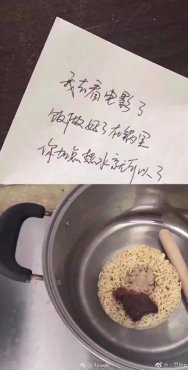 我去看电影了
饭做好了在锅里
你加点热水就可以了